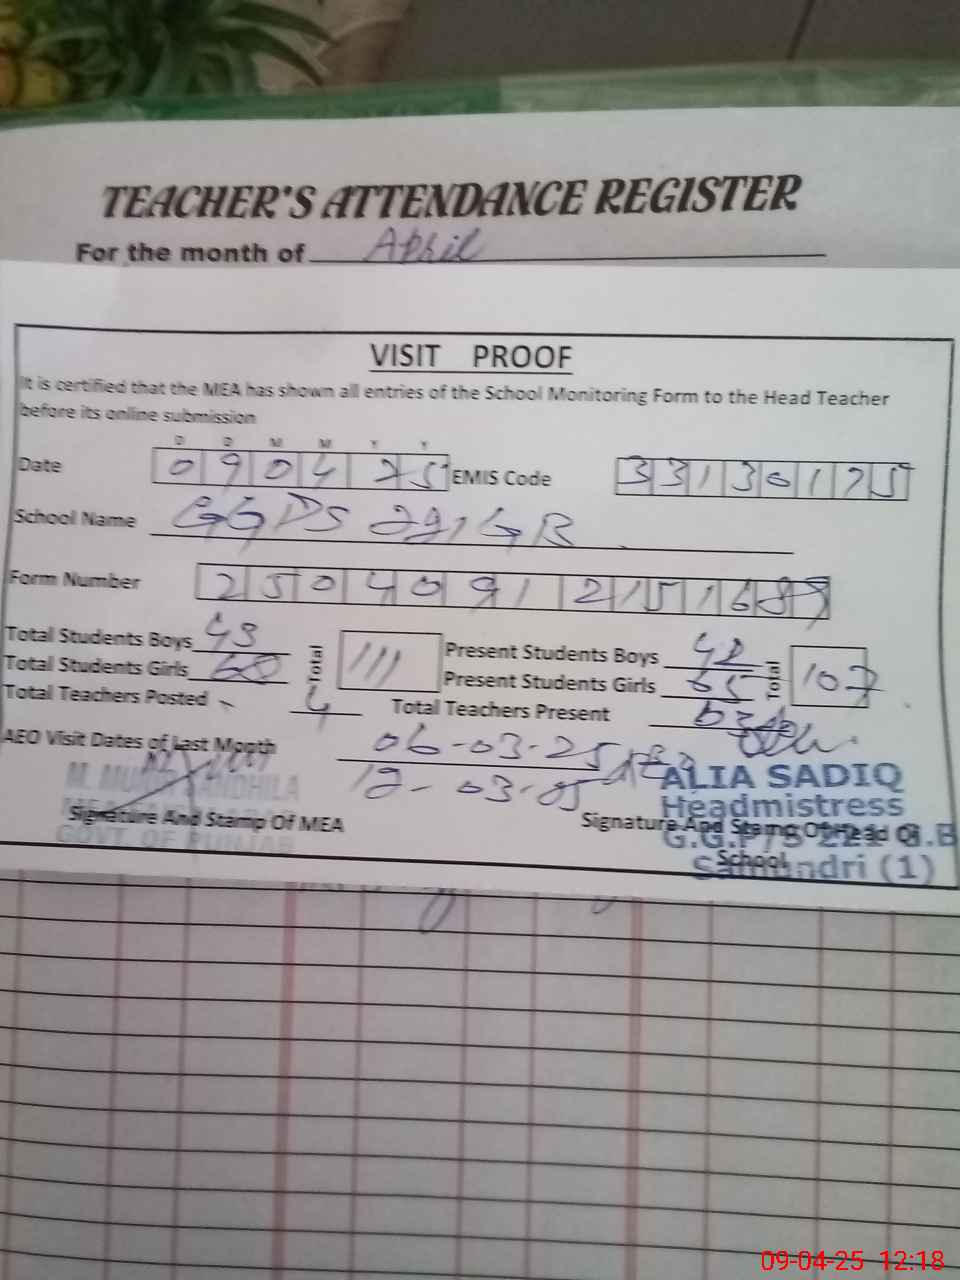 TEACHER'S ATTENDANCE REGISTER
For the month of April
VISIT PROOF
It is certified that the MEA has shown all entries of the School Monitoring Form to the Head Teacher
before its online submission
D D M M Y Y
Date 090425 EMIS Code 33130175
School Name GGPS 221 GB
Form Number 2504091215168
Total Students Boys 43 Total 111 Present Students Boys 42 Total 107
Total Students Girls 68 Present Students Girls 65
Total Teachers Posted 4 Total Teachers Present 03
AEO Visit Dates of Last Month 06-03-25
12-03-25
M. ANDHILA
GOVT. OF PUNJAB
Signature And Stamp Of MEA
ALIA SADIQ
Headmistress
G.G.P/S 221 G.B
Samundri (1)
Signature And Stamp Of Head Of
School
09-04-25 12:18